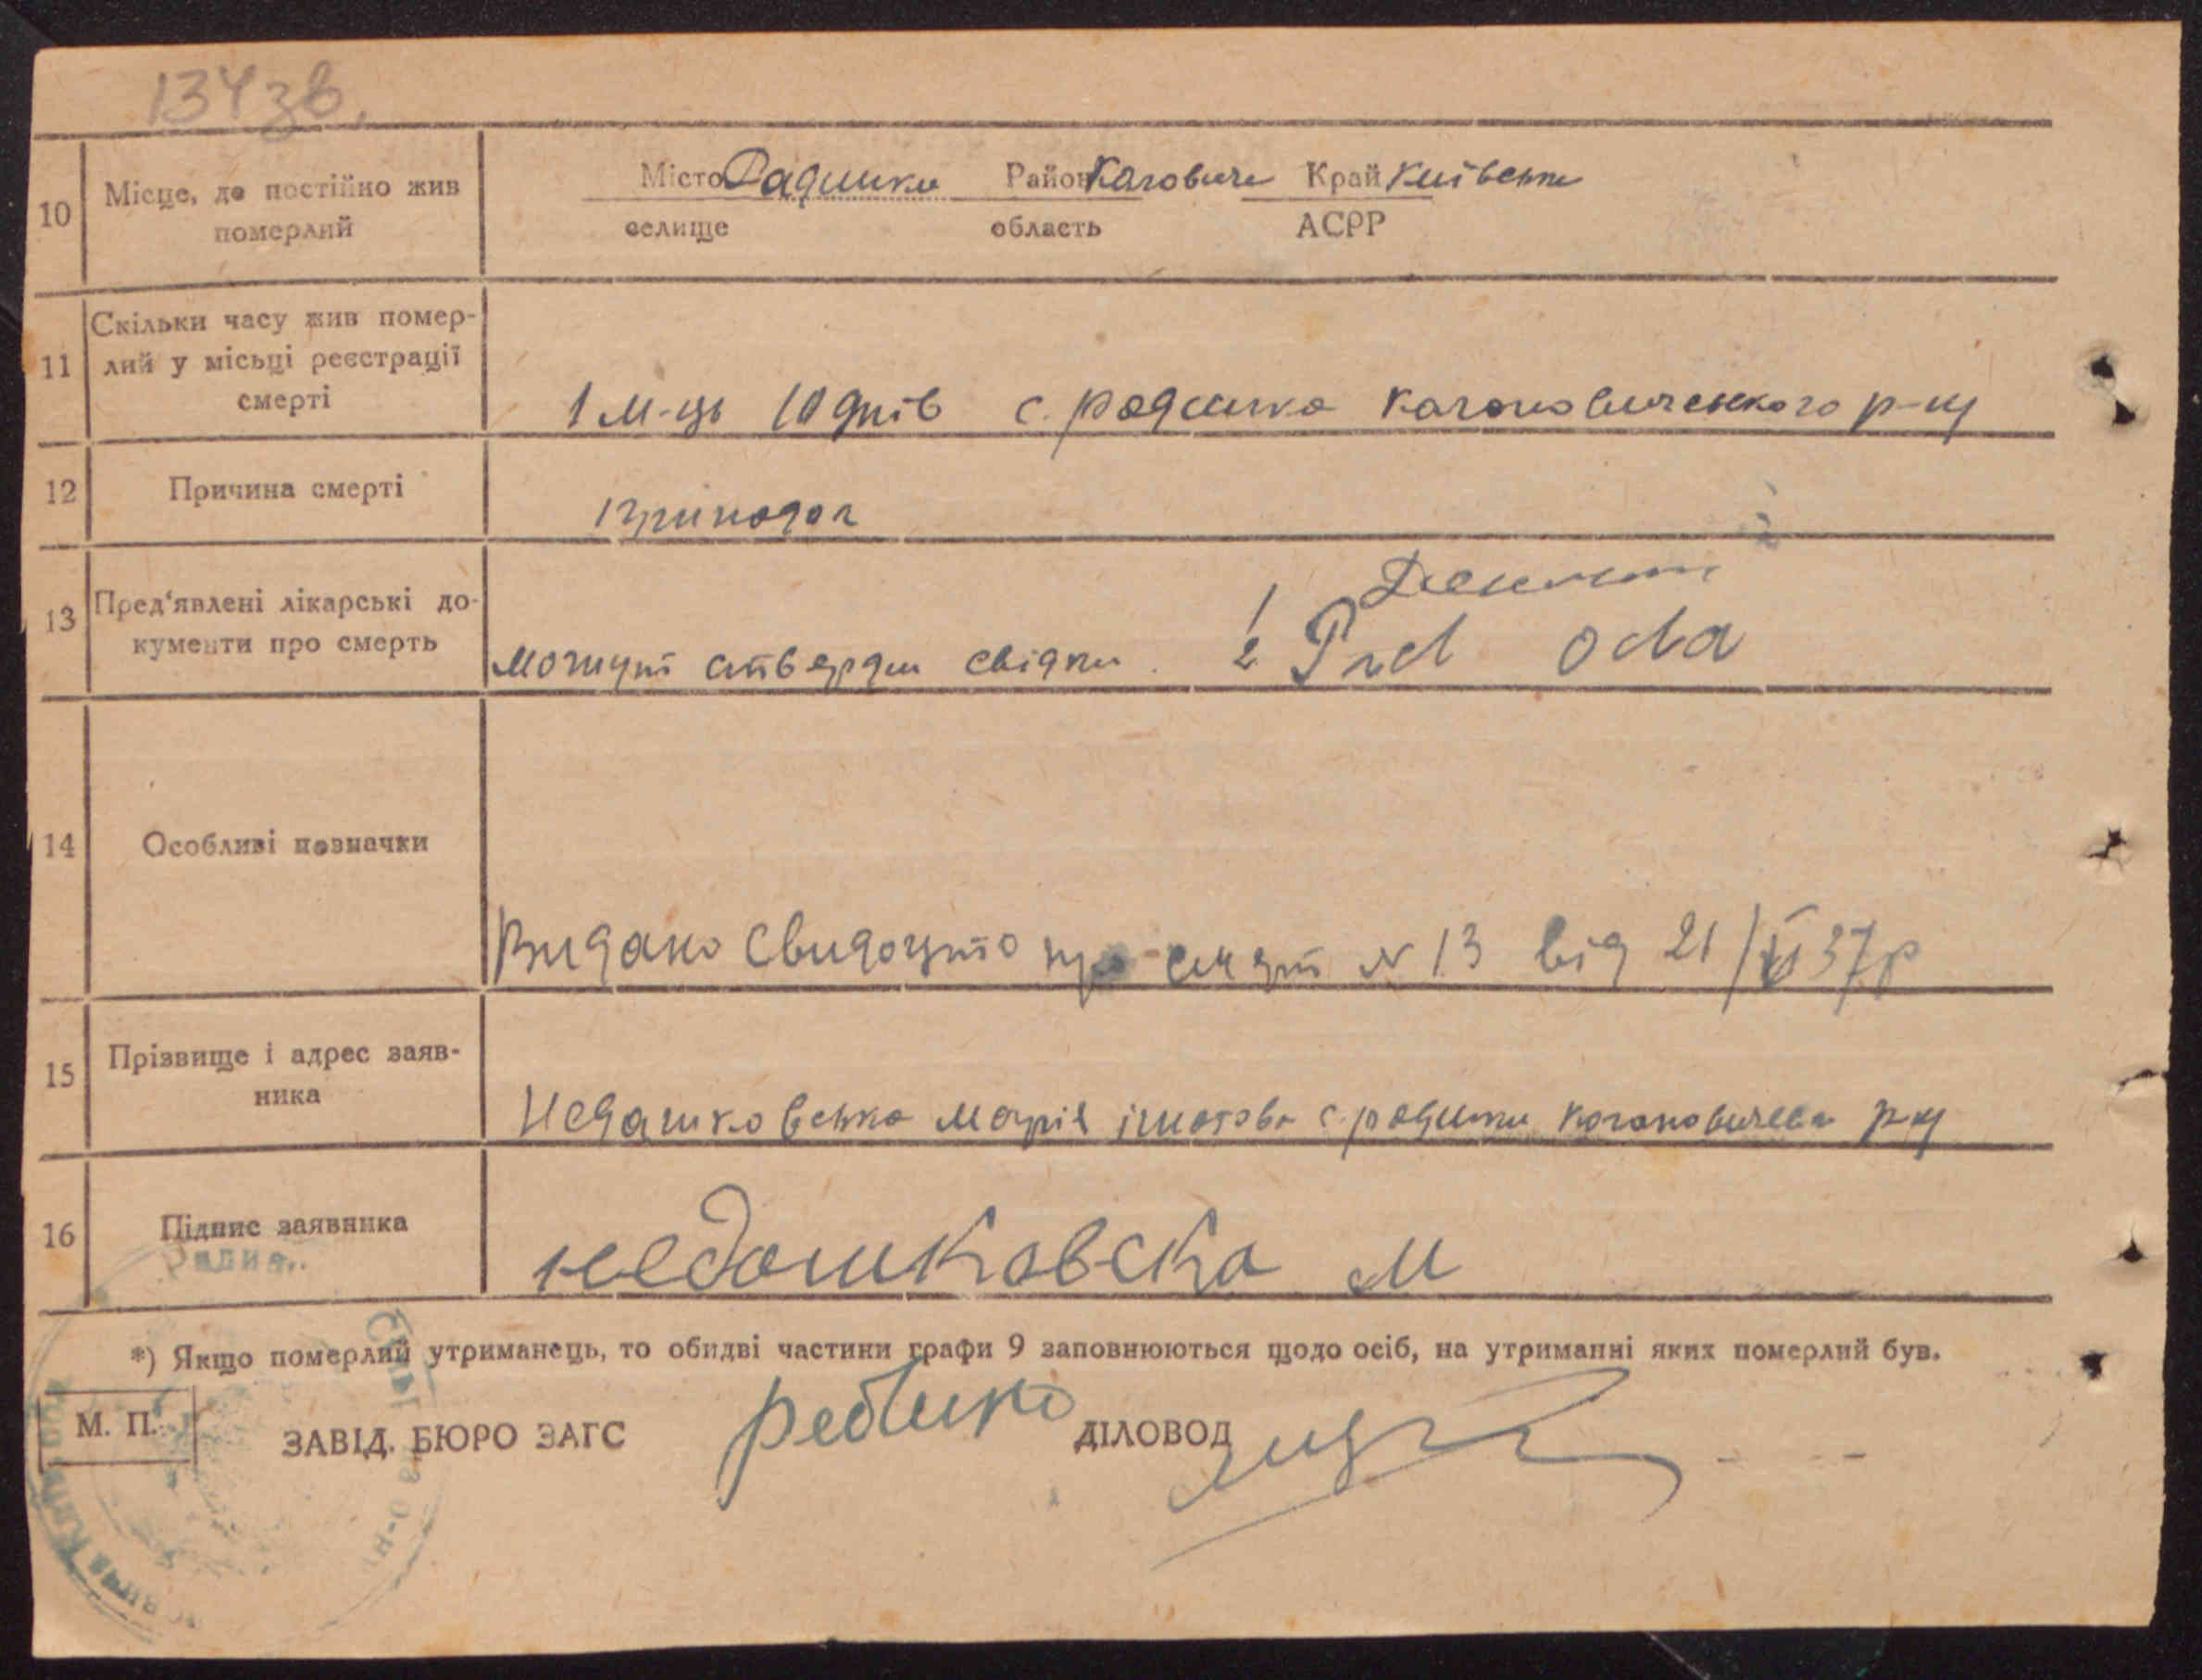 134зв.
10 Місце, де постійно жив померлий
Місто Радинка Район Кагович Край Київська
селище область АСРР
11 Скільки часу жив помер-
лий у місьці реєстрації
смерті
1 м-ць 10 днів с. радинка кагановиченського р-ну
12 Причина смерті
13 Пред'явлені лікарські до-
кументи про смерть
1
можуть ствердити свідки. 2
14 Особливі позначки
Видано свидоцтто про смерт N 13 від 21/VI 37р
15 Прізвище і адрес заяв-
ника
Недашковська марія с. радинки р-ну
16 Підпис заявника
недошковска М
*) Якщо померлий утриманець, то обидві частини графи 9 заповнюються щодо осіб, на утриманні яких померлий був.
М. П.
ЗАВІД. БЮРО ЗАГС ДІЛОВОД